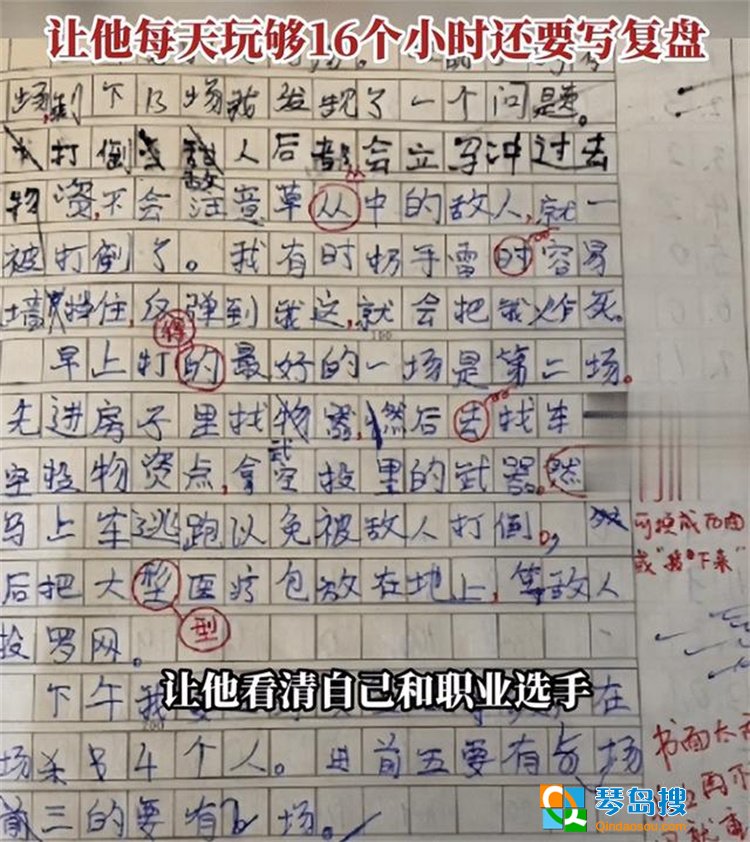 让他每天玩够16个小时还要写复盘
场,制下13场我发现了一个问题。
打倒敌人后都会立马冲过去
物资,不会注意草从中的敌人,就一
被打倒了。我有时扔手雷时容易
墙挡住,反弹到我这,就会把我炸死。
得
100
早上打的最好的一场是第二场。
先进房子里找物资,然后去找车
武
空投物资点,拿空投里的武器。然
马上车逃跑以免被敌人打倒。
可换成
或"接下来"
后把大型医疗包放在地上,等敌人
型
投罗网。
下午我
让他看清自己和职业选手
在
200
场杀号4个人。进前五要有 场
书面
前三的要有6场。
琴岛搜
Qindaosou.com